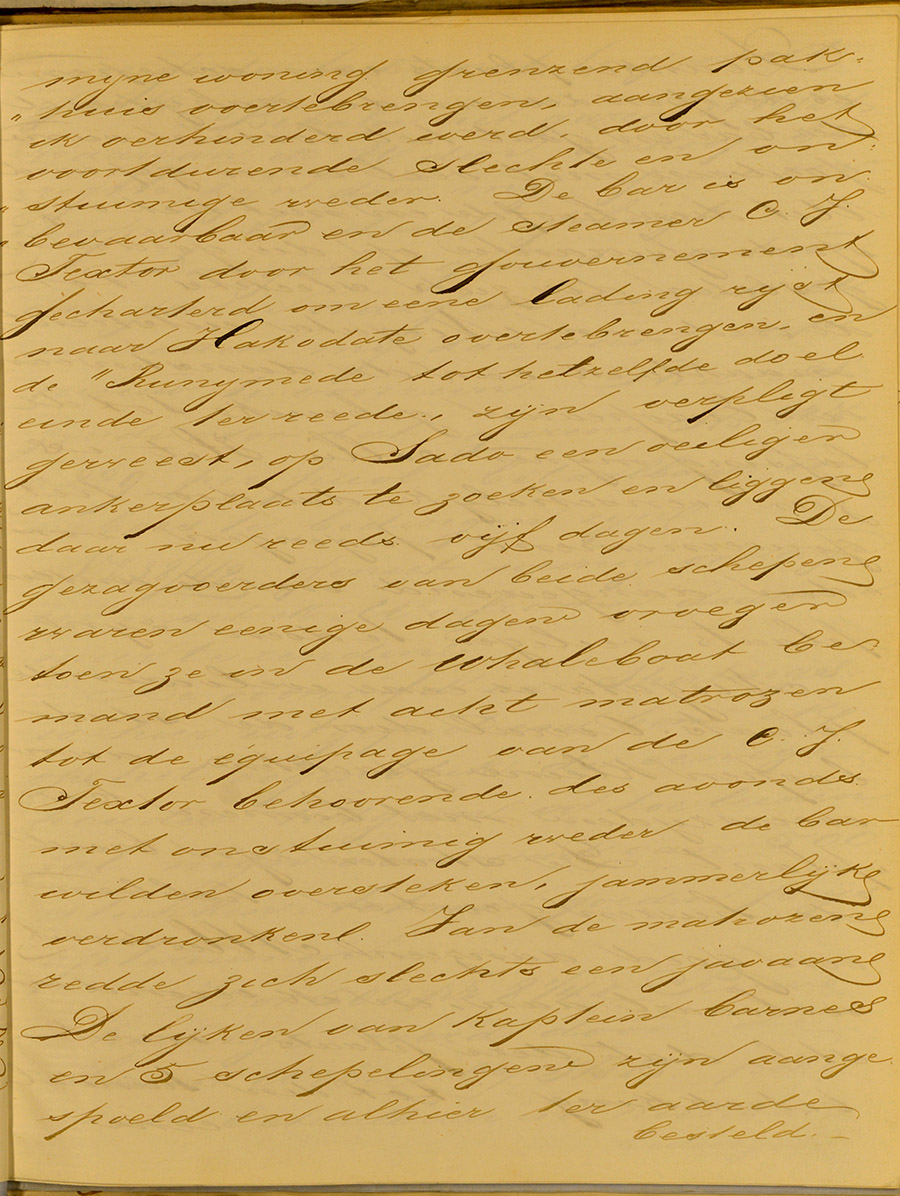 myne woning grenzend pak-
"huis overtebrengen, aangezien
ik verhinderd werd, door het
voortdurende slechte en on-
stuimige weder. De bar is on-
bevaarbaar en de steamer C. J.
Textor door het gouvernement
gecharterd om eene lading rijst
naar Hakodate overtebrengen, en
de "Runymede tot hetzelfde doel
einde ter reede, zijn verpligt
geweest, op Sado een veiligen
ankerplaats te zoeken en liggen
daar nu reeds vijf dagen. De
gezagvoerders van beide schepen
waren eenige dagen vroeger
toen ze in de whaleboat be-
mand met acht matrozen
tot de équipage van de C. J.
Textor behoorende des avonds
met onstuimig weder de bar
wilden oversteken, jammerlijk
verdronken. Van de matrozen
redde zich slechts een javaan
De lijken van Kaptein Barnes
en 5 schepelingen zijn aange-
spoeld en alhier ter aarde
besteld. -